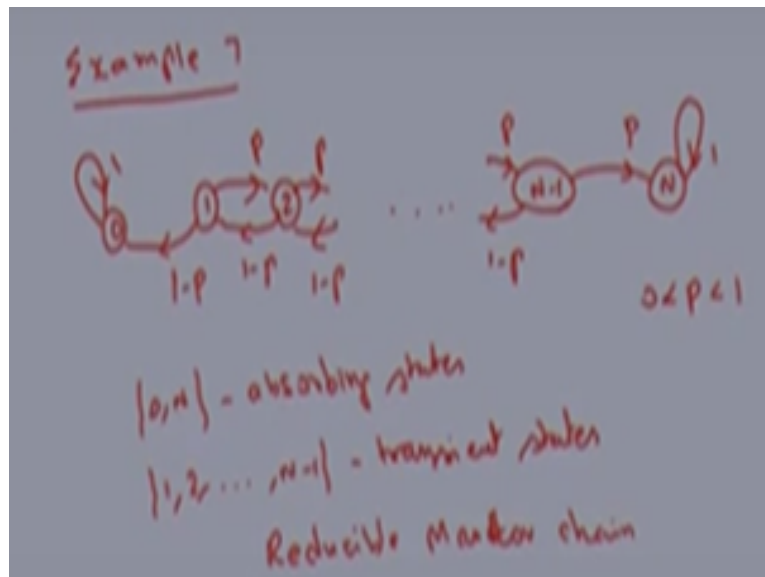 Example 7
1 P P P P 1
0 1 2 .... N-1 N
1-P 1-P 1-P 1-P
0<P<1
{0,N} - absorbing states
{1,2,...,N-1} - transient states
Reducible Markov chain